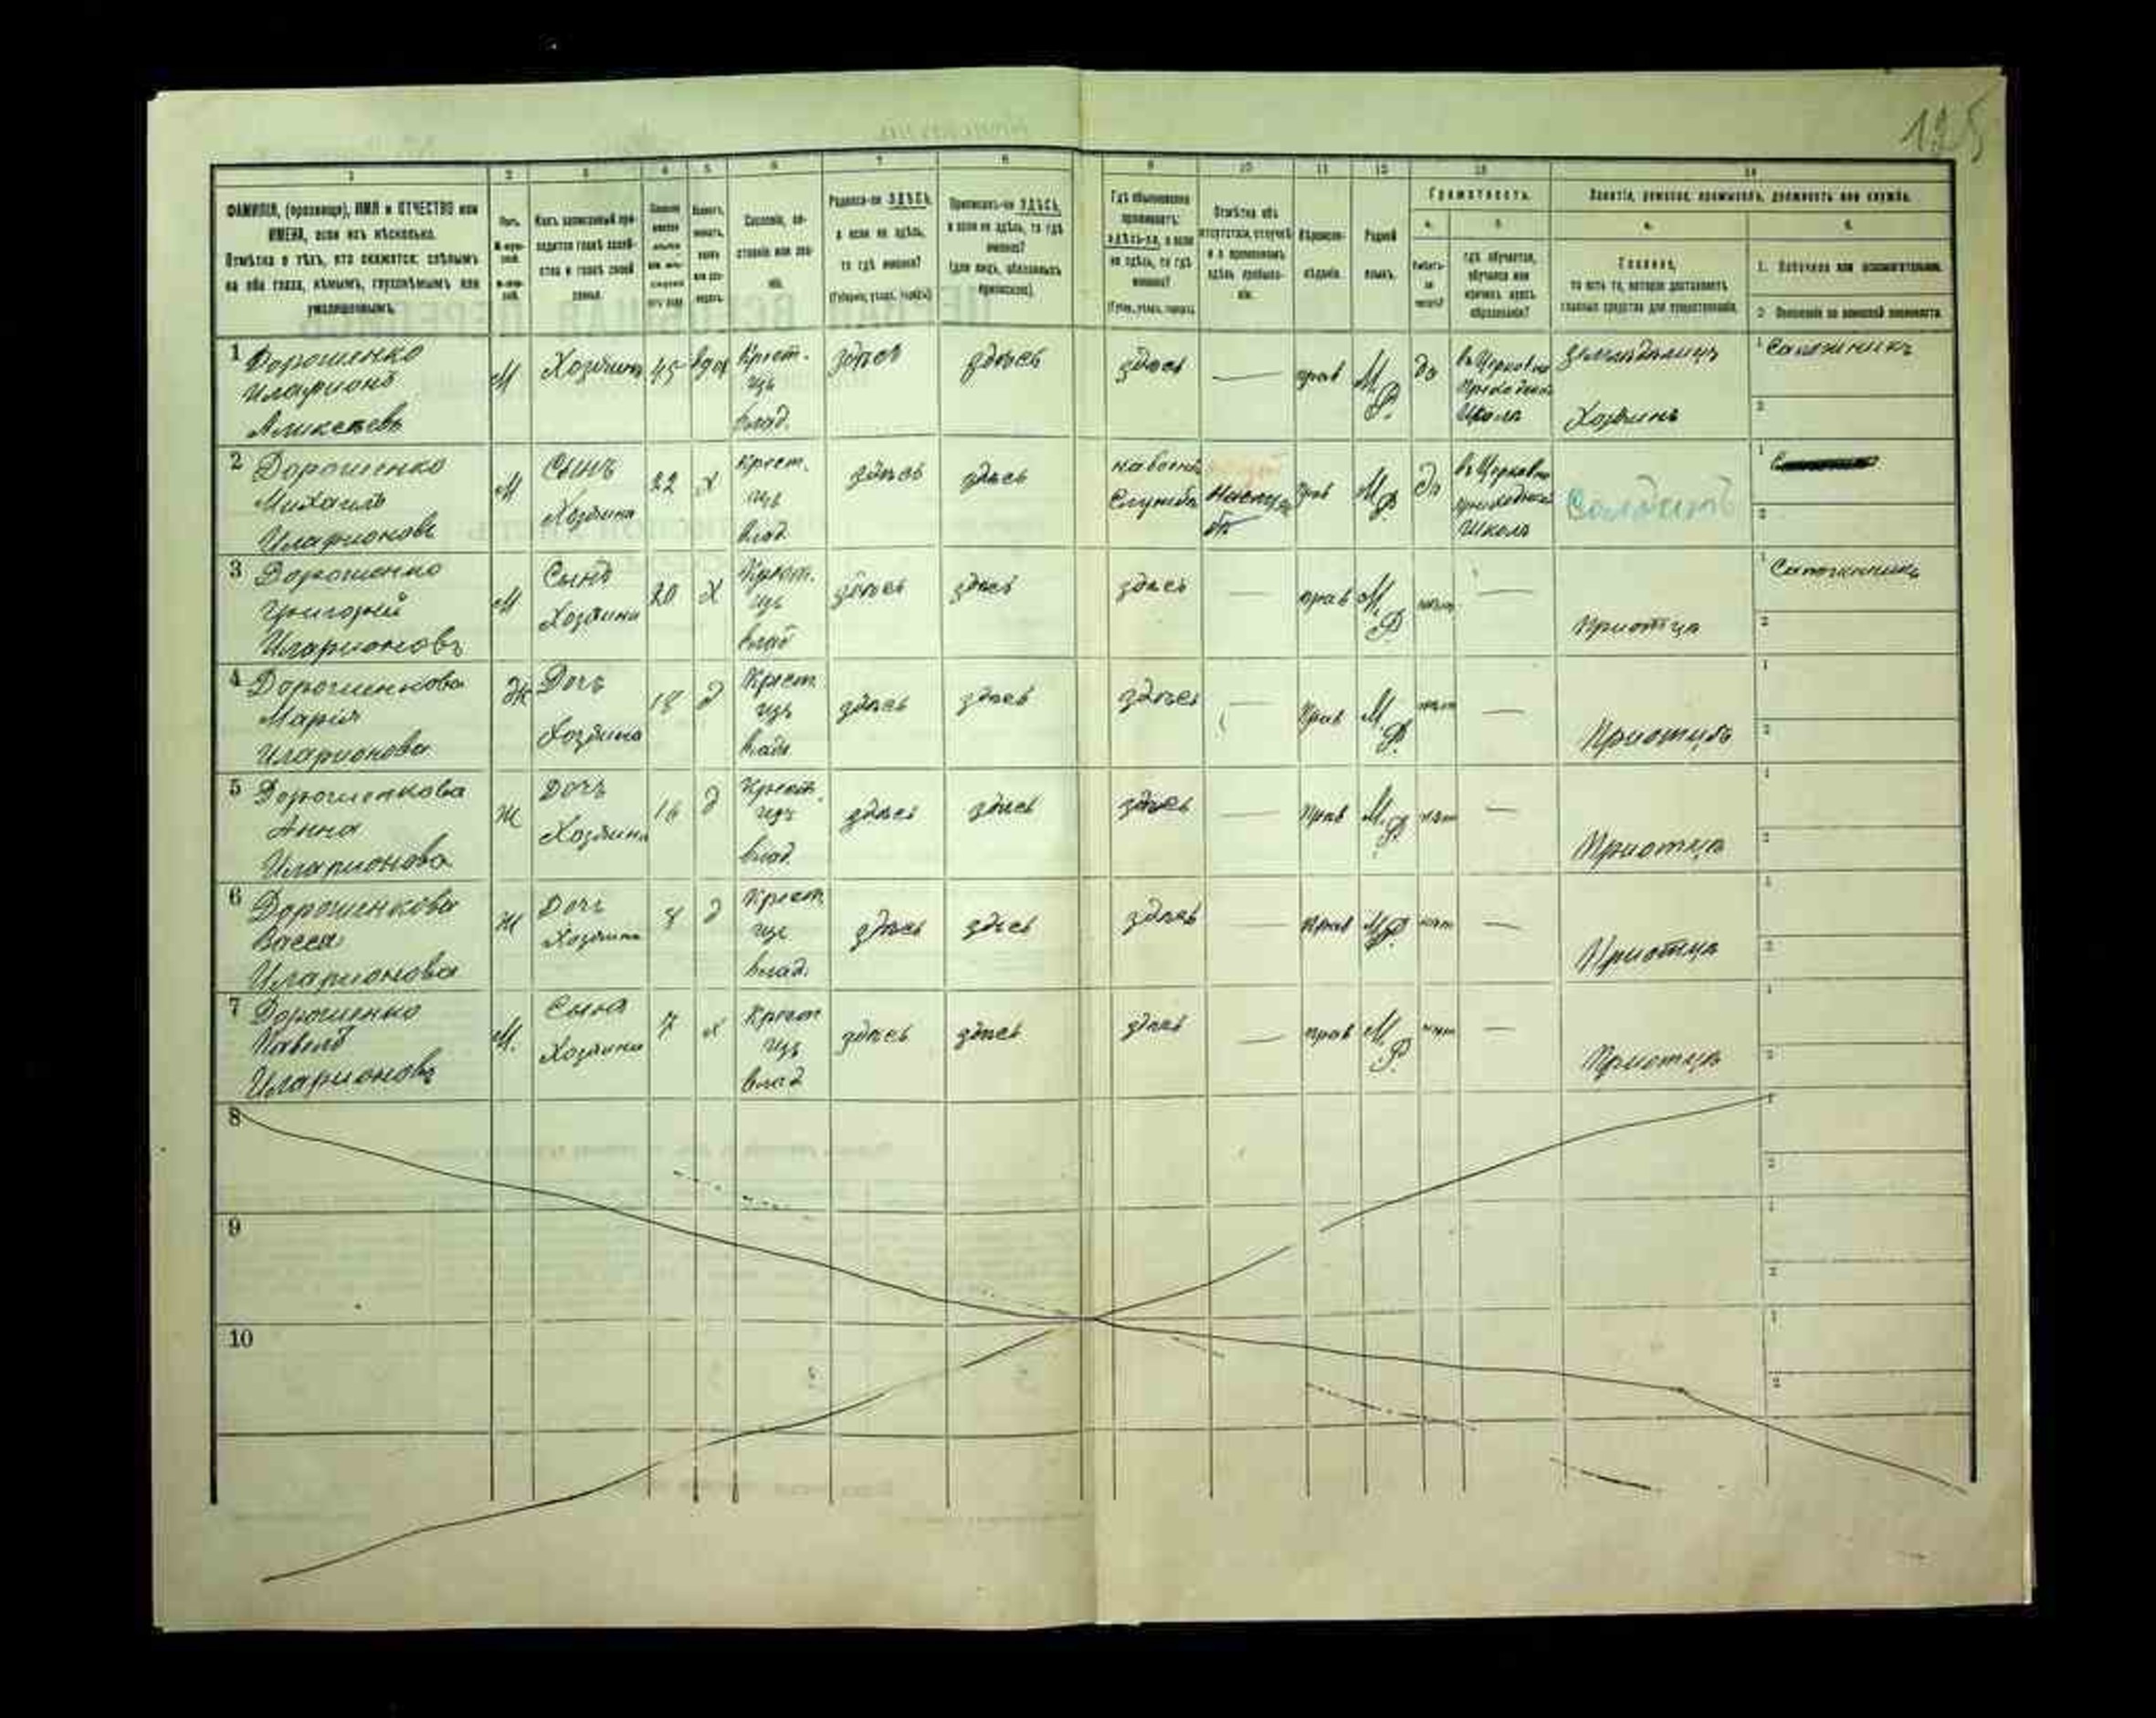 125
1 2 3 4 5 6 7 8 9 10 11 12 13 14
ФАМИЛІЯ, (прозвище), ИМЯ и ОТЧЕСТВО или
ИМЕНА, если ихъ нѣсколько.
Отмѣтка о тѣхъ, кто окажется: слѣпымъ
на оба глаза, нѣмымъ, глухонѣмымъ или
умалишеннымъ.
Полъ.
Какъ записанный при-
ходится главѣ хозяй-
ства и главѣ своей
семьи.
Сословіе, со-
стояніе или зва-
ніе.
Родился-ли ЗДѢСЬ,
а если не здѣсь,
то гдѣ именно?
(Губернія, уѣздъ, городъ)
Приписанъ-ли ЗДѢСЬ,
а если не здѣсь, то гдѣ
именно?
(для лицъ, обязанныхъ
припискою).
Гдѣ обыкновенно
проживаетъ:
здѣсь-ли, а если
не здѣсь, то гдѣ
именно?
(Губ., уѣздъ, городъ).
Отмѣтка объ
отсутствіи, отлучкѣ
и о временномъ
здѣсь пребыва-
ніи.
Вѣроиспо-
вѣданіе.
Родной
языкъ.
Грамотность.
а. б.
Умѣетъ-
ли
читать?
гдѣ обучается,
обучался или
кончилъ курсъ
образованія?
Занятіе, ремесло, промыселъ, должность или служба.
а. б.
Главное,
то есть то, которое доставляетъ
главныя средства для существованія.
1. Побочное или вспомогательное.
2. Положеніе по воинской повинности.
1 Дорошенко
Иларионъ
Аликсѣевъ
М Хозяинъ 45 вдов Крест. изъ влад. здѣсь здѣсь здѣсь — прав М.Р. да въ Церковно Приходской Школѣ земледѣлецъ Хозяинъ 1 Сапожникъ 2
2 Дорошенко
Михаилъ
Иларионовъ
М Сынъ Хозяина 22 х Крест. изъ влад. здѣсь здѣсь на военной Службѣ прав М.Р. да въ Церковно приходской Школѣ Солдатъ 1 2
3 Дорошенко
Григорій
Иларионовъ
М Сынъ Хозяина 20 х Крест. изъ влад здѣсь здѣсь здѣсь — прав М.Р. нѣт — Приотцѣ 1 Сапожникъ 2
4 Дорошенкова
Марія
Иларионова
Ж Дочь Хозяина 18 д Крест. изъ влад. здѣсь здѣсь здѣсь — Прав М.Р. нѣт — Приотцѣ 1 2
5 Дорошенкова
Анна
Иларионова
Ж Дочь Хозяина 16 д Крест. изъ влад. здѣсь здѣсь здѣсь — Прав М.Р. нѣт — Приотцѣ 1 2
6 Дорошенкова
Васса
Иларионова
Ж Дочь Хозяина 8 д Крест. изъ влад. здѣсь здѣсь здѣсь — Прав М.Р. нѣт — Приотцѣ 1 2
7 Дорошенко
Павелъ
Иларионовъ
М. Сынъ Хозяина 7 х Крест изъ влад здѣсь здѣсь здѣсь — прав М.Р. нѣт — Приотцѣ 1 2
8 1 2
9 1 2
10 1 2